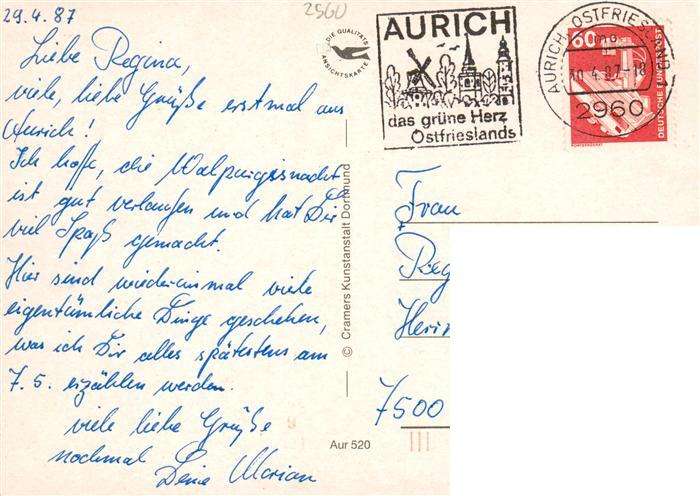 29.4.87
2960
Liebe Regina,
viele, liebe Grüße erstmal aus
Aurich!
Ich hoffe, die Walpurgisnacht
ist gut verlaufen und hat Dir
viel Spaß gemacht.
Hier sind wiedereinmal viele
eigentümliche Dinge geschehen,
was ich Dir alles spätestens am
7.5. erzählen werden.
viele liebe Grüße
nochmal Deine Marian
DIE QUALITÄTS
ANSICHTSKARTE
© Cramers Kunstanstalt Dortmund
Aur 520
AURICH
das grüne Herz
Ostfrieslands
AURICH, OSTFRIESL
30.4.87-18
2960
60
DEUTSCHE BUNDESPOST
Frau
Reg
Herr
7500